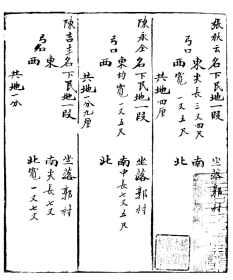 張秋云名下民地一段 坐落郭村
弓口 東 東長三丈四尺 南
西 寬一丈五尺 北
共地四厘
陳永全名下民地一段 坐落郭村
弓口 東 均寬一丈五尺 南 中長七丈五尺
西 北
共地一分九厘
陳言圭名下民地一段 坐落郭村
弓口 東 南 南尖長七丈
西 北 寬一丈七丈
共地一分